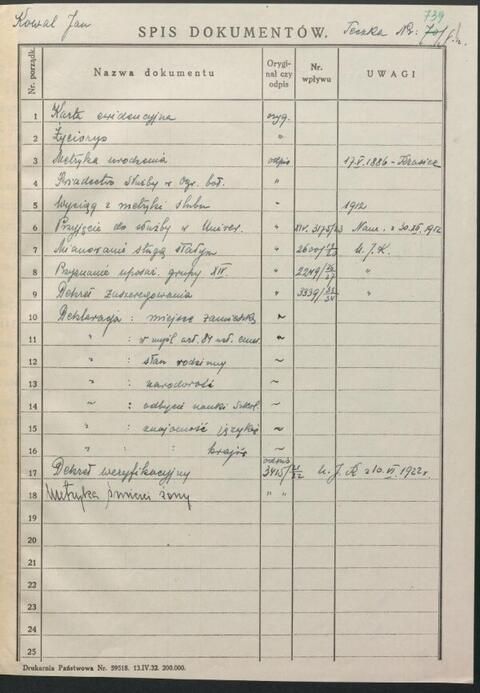 Kowal Jan
739
SPIS DOKUMENTÓW.
Teczka Nr:
Nr. porządk.
Nazwa dokumentu
Oryginał czy odpis
Nr. wpływu
UWAGI
1 Karta ewidencyjna oryg.
2 Życiorys "
3 Metryka urodzenia odpis 17.V.1886 -
4 Świadectwo służby w Ogr. bot. "
5 Wyciąg z metryki ślubu " 1912
6 Przyjęcie do służby w Uniwer. " Nam. z 30.XII.1912
7 Mianowanie sługą stałym " U.J.K.
8 Przyznanie uposaż. grupy XIV. " 2249/26/27 "
9 Dekret zaszeregowania " 3939/33/34 "
10 Deklaracja : miejsce zamieszk. ~
11 " : w myśl art. 84 ust. emer. ~
12 " : stan rodzinny ~
13 " : narodowość ~
14 ~ : odbycie nauki szkol. ~
15 " : znajomość języków ~
16 " : " krajów ~
17 Dekret weryfikacyjny odpis 3415/21/22 U.J.K z 10.VI.1922r.
18 Metryka śmierci żony " "
19
20
21
22
23
24
25
Drukarnia Państwowa Nr. 59518. 13.IV.32. 200.000.